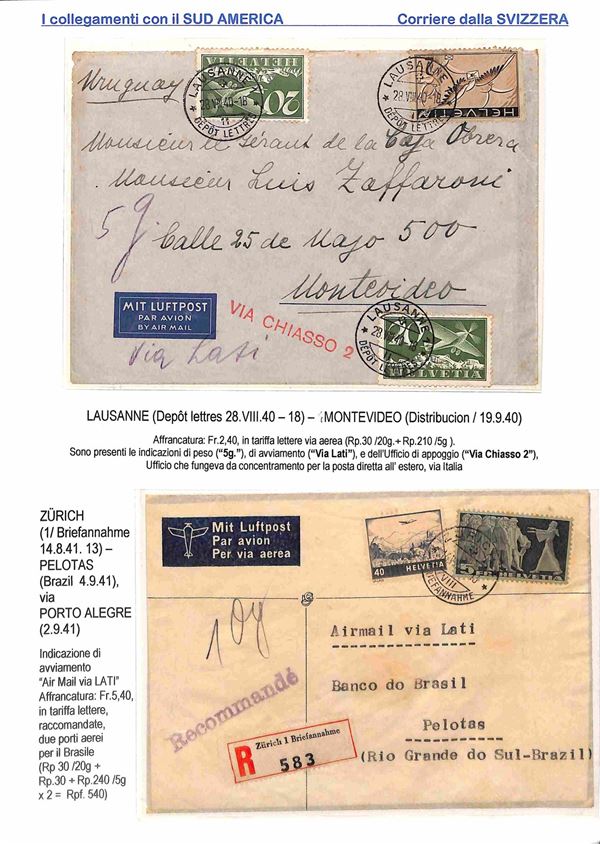 I collegamenti con il SUD AMERICA Corriere dalla SVIZZERA
Uruguay
LAUSANNE 1
28.VIII.40-18
11
DEPÔT LETTRES
20
HELVETIA
LAUSANNE 1
28.VIII.40-18
11
DEPÔT LETTRES
HELVETIA
Monsieur le Gérant de la Caja Obrera
Monsieur Luis Zaffaroni
5 g
Calle 25 de Mayo 500
Montevideo
MIT LUFTPOST
PAR AVION
BY AIR MAIL
VIA CHIASSO 2
via Lati
LAUSANNE
DEPÔT LETTRES
HELVETIA
LAUSANNE (Depôt lettres 28.VIII.40 – 18) – MONTEVIDEO (Distribucion / 19.9.40)
Affrancatura: Fr.2,40, in tariffa lettere via aerea (Rp.30 /20g.+ Rp.210 /5g ).
Sono presenti le indicazioni di peso (“5g.”), di avviamento (“Via Lati”), e dell’Ufficio di appoggio (“Via Chiasso 2”),
Ufficio che fungeva da concentramento per la posta diretta all’ estero, via Italia
ZÜRICH
(1/ Briefannahme
14.8.41. 13) –
PELOTAS
(Brazil 4.9.41),
via
PORTO ALEGRE
(2.9.41)
Indicazione di
avviamento
“Air Mail via LATI”
Affrancatura: Fr.5,40,
in tariffa lettere,
raccomandate,
due porti aerei
per il Brasile
(Rp 30 /20g +
Rp.30 + Rp.240 /5g
x 2 = Rpf. 540)
Mit Luftpost
Par avion
Per via aerea
40 HELVETIA
5 FR HELVETIA
BRIEFANNAHME
10g
Recommandé
Airmail via Lati
Banco do Brasil
Pelotas
(Rio Grande do Sul-Brazil)
R
Zürich 1 Briefannahme
583